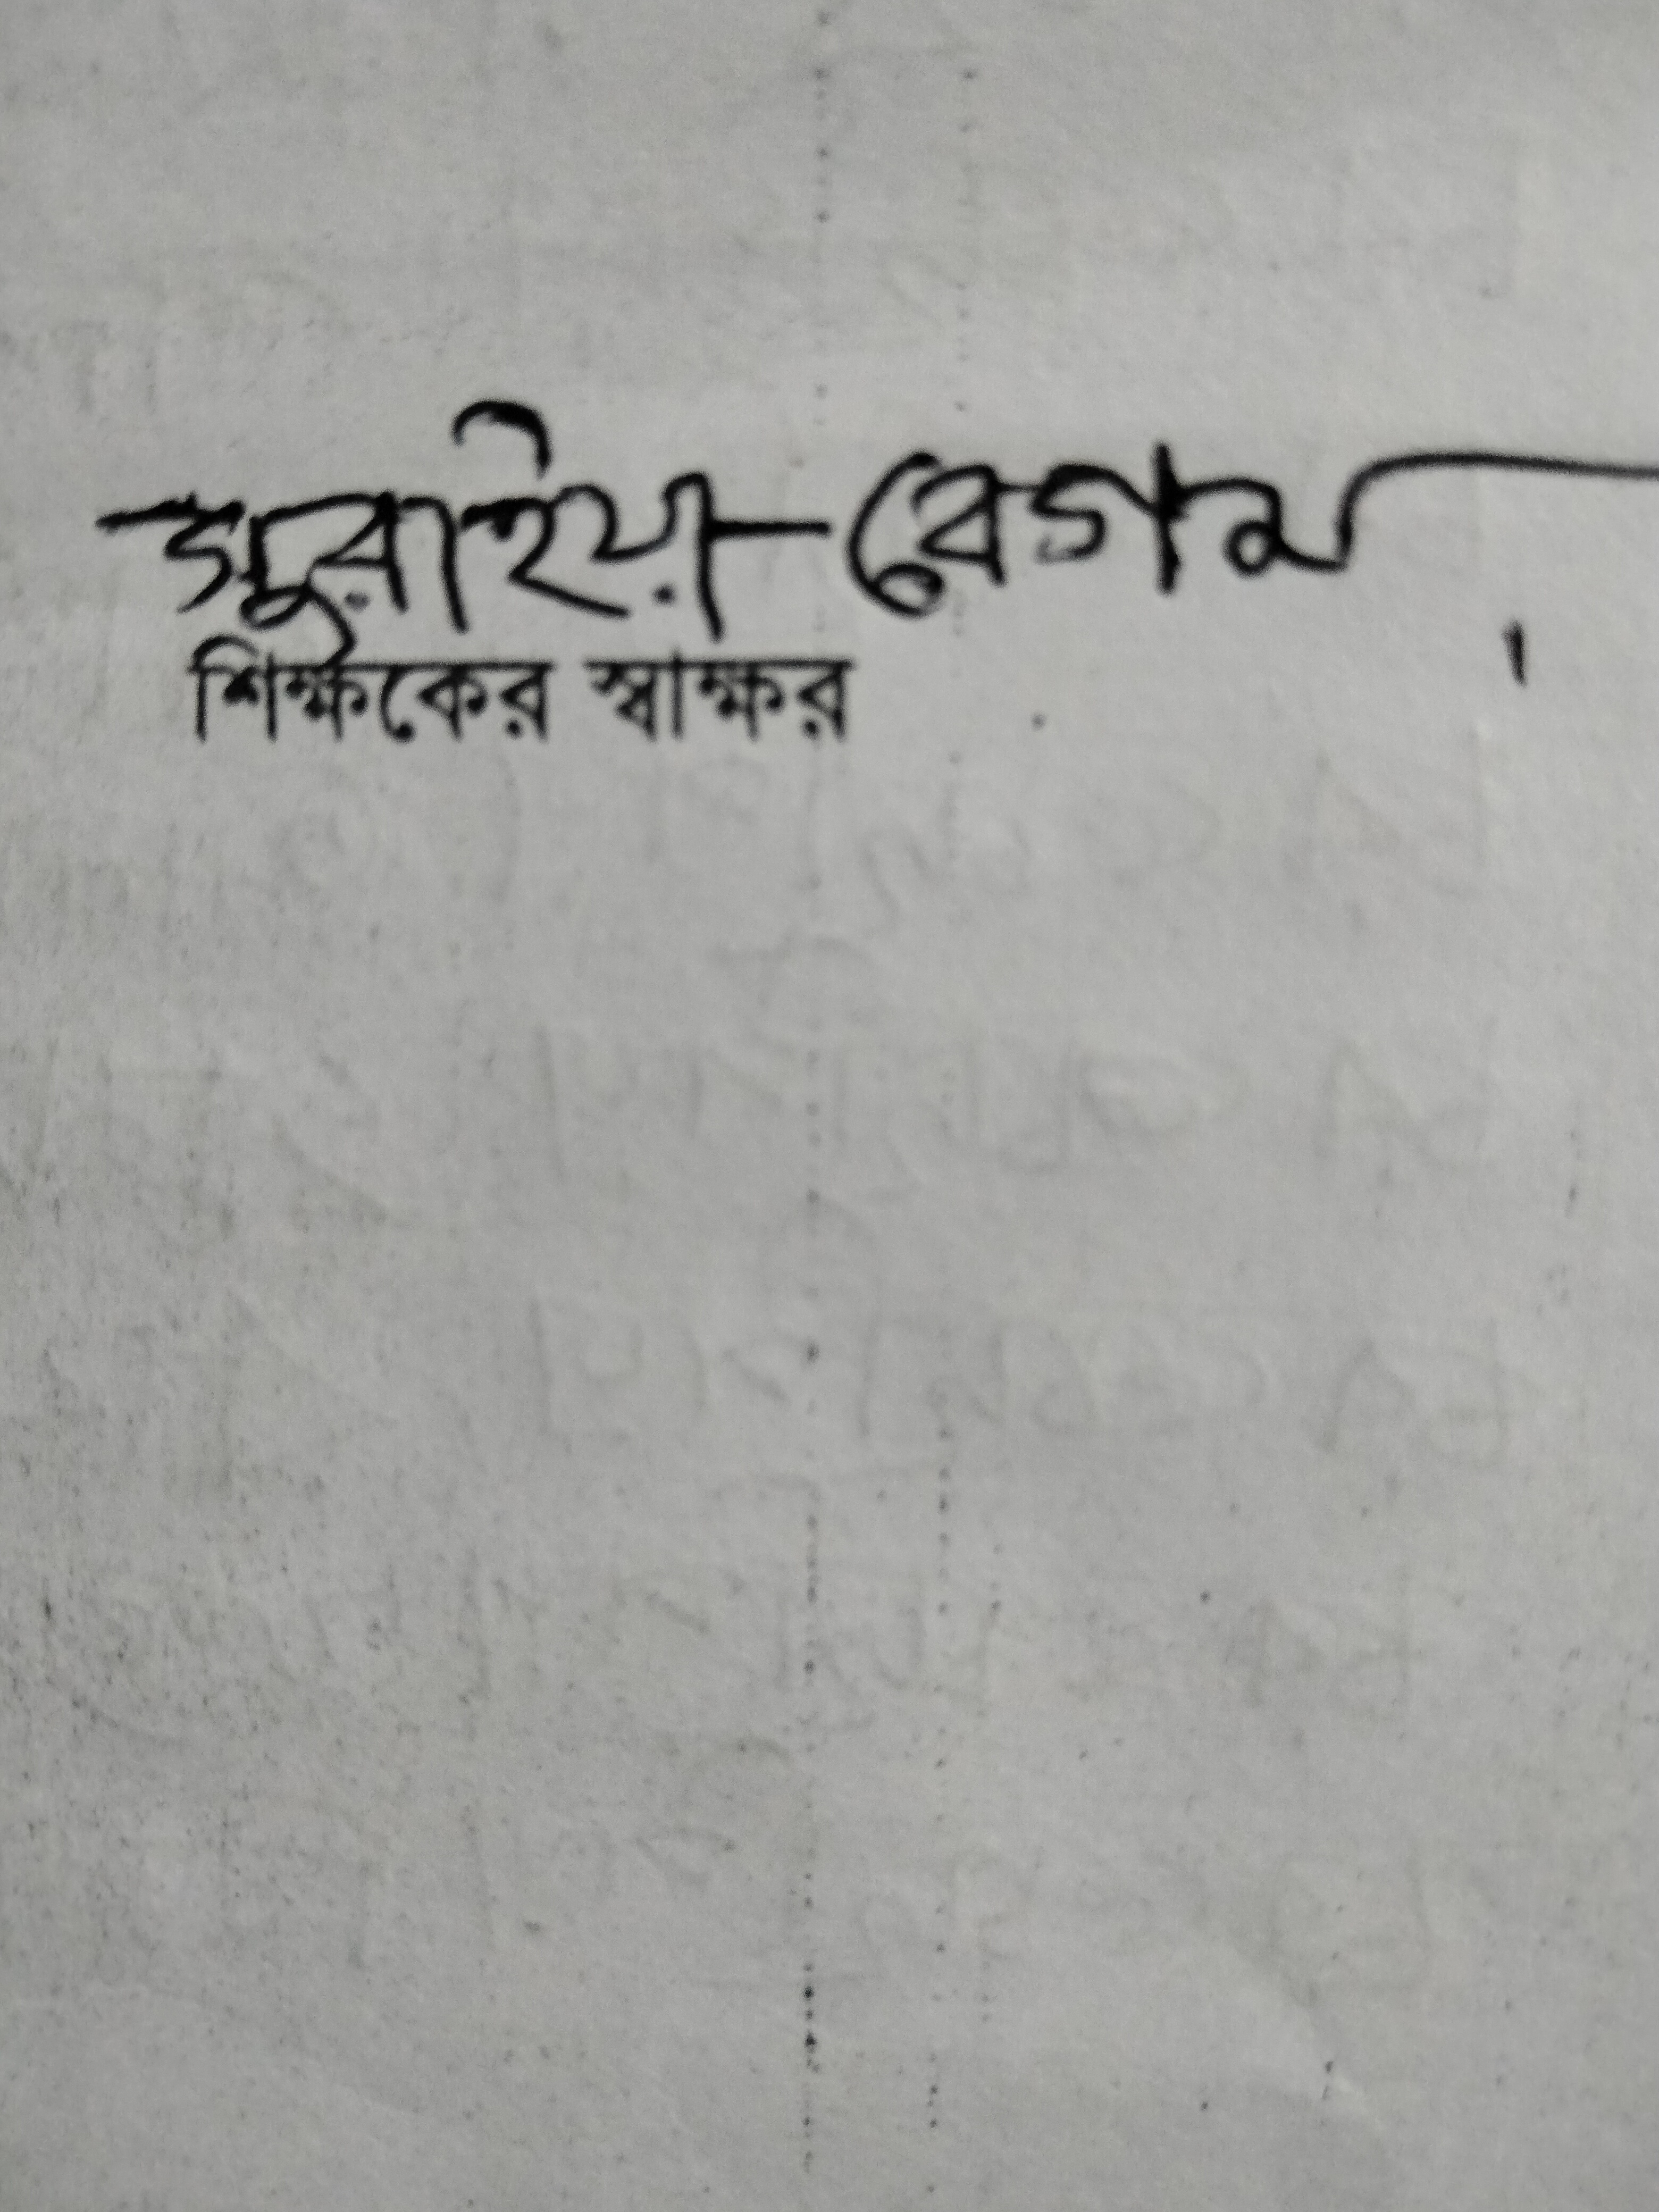 সুরাইয়া বেগম
শিক্ষকের স্বাক্ষর